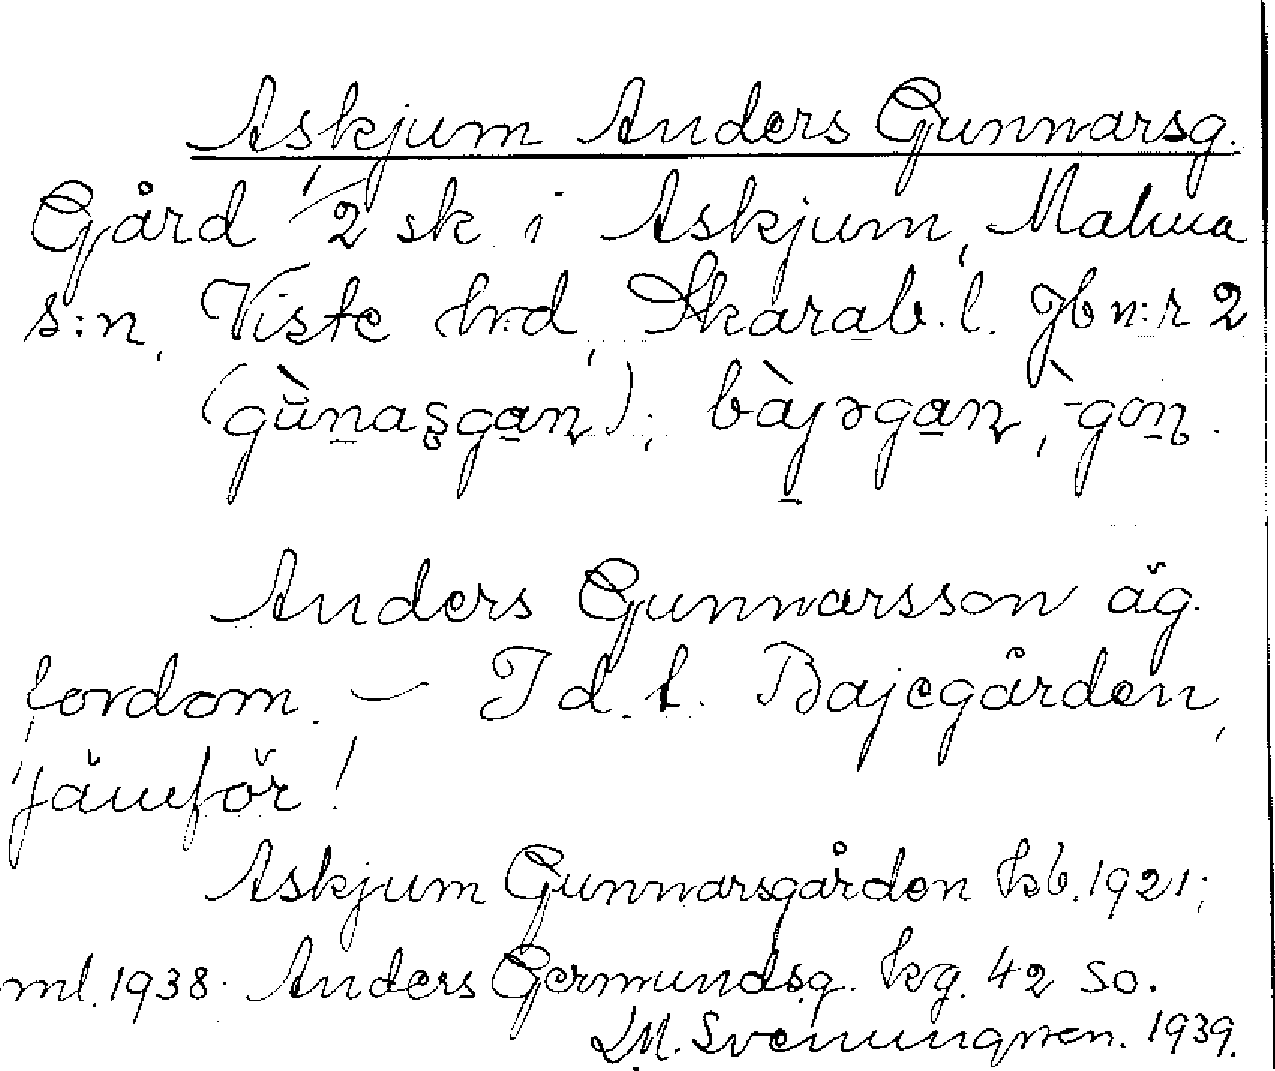 Askjum Anders Gunnarsg.
Gård 1/2 sk. i Askjum, Malma
s:n, Viste hrd, Skarab. l. Jb n:r 2
(gùnaʂgaɳ); bàjəgaɳ, -gɔɳ.
Anders Gunnarsson äg.
fordom. — Id. t. Bajegården,
jämför!
Askjum Gunnarsgården kb. 1921;
ml. 1938. Anders Germundsg. kg. 42 so.
LM. Svenungsson. 1939.